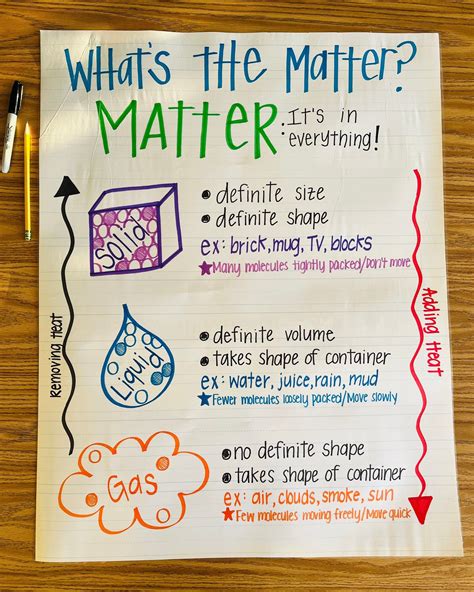 What's the Matter?
MATTER: It's in
everything!
Solid
• definite size
• definite shape
ex: brick, mug, TV, blocks
★Many molecules tightly packed/Don't move
Removing Heat
Adding Heat
Liquid
• definite volume
• takes shape of container
ex: water, juice, rain, mud
★Fewer molecules loosely packed/Move slowly
Gas
• no definite shape
• takes shape of container
ex: air, clouds, smoke, sun
★Few molecules moving freely/Move quick